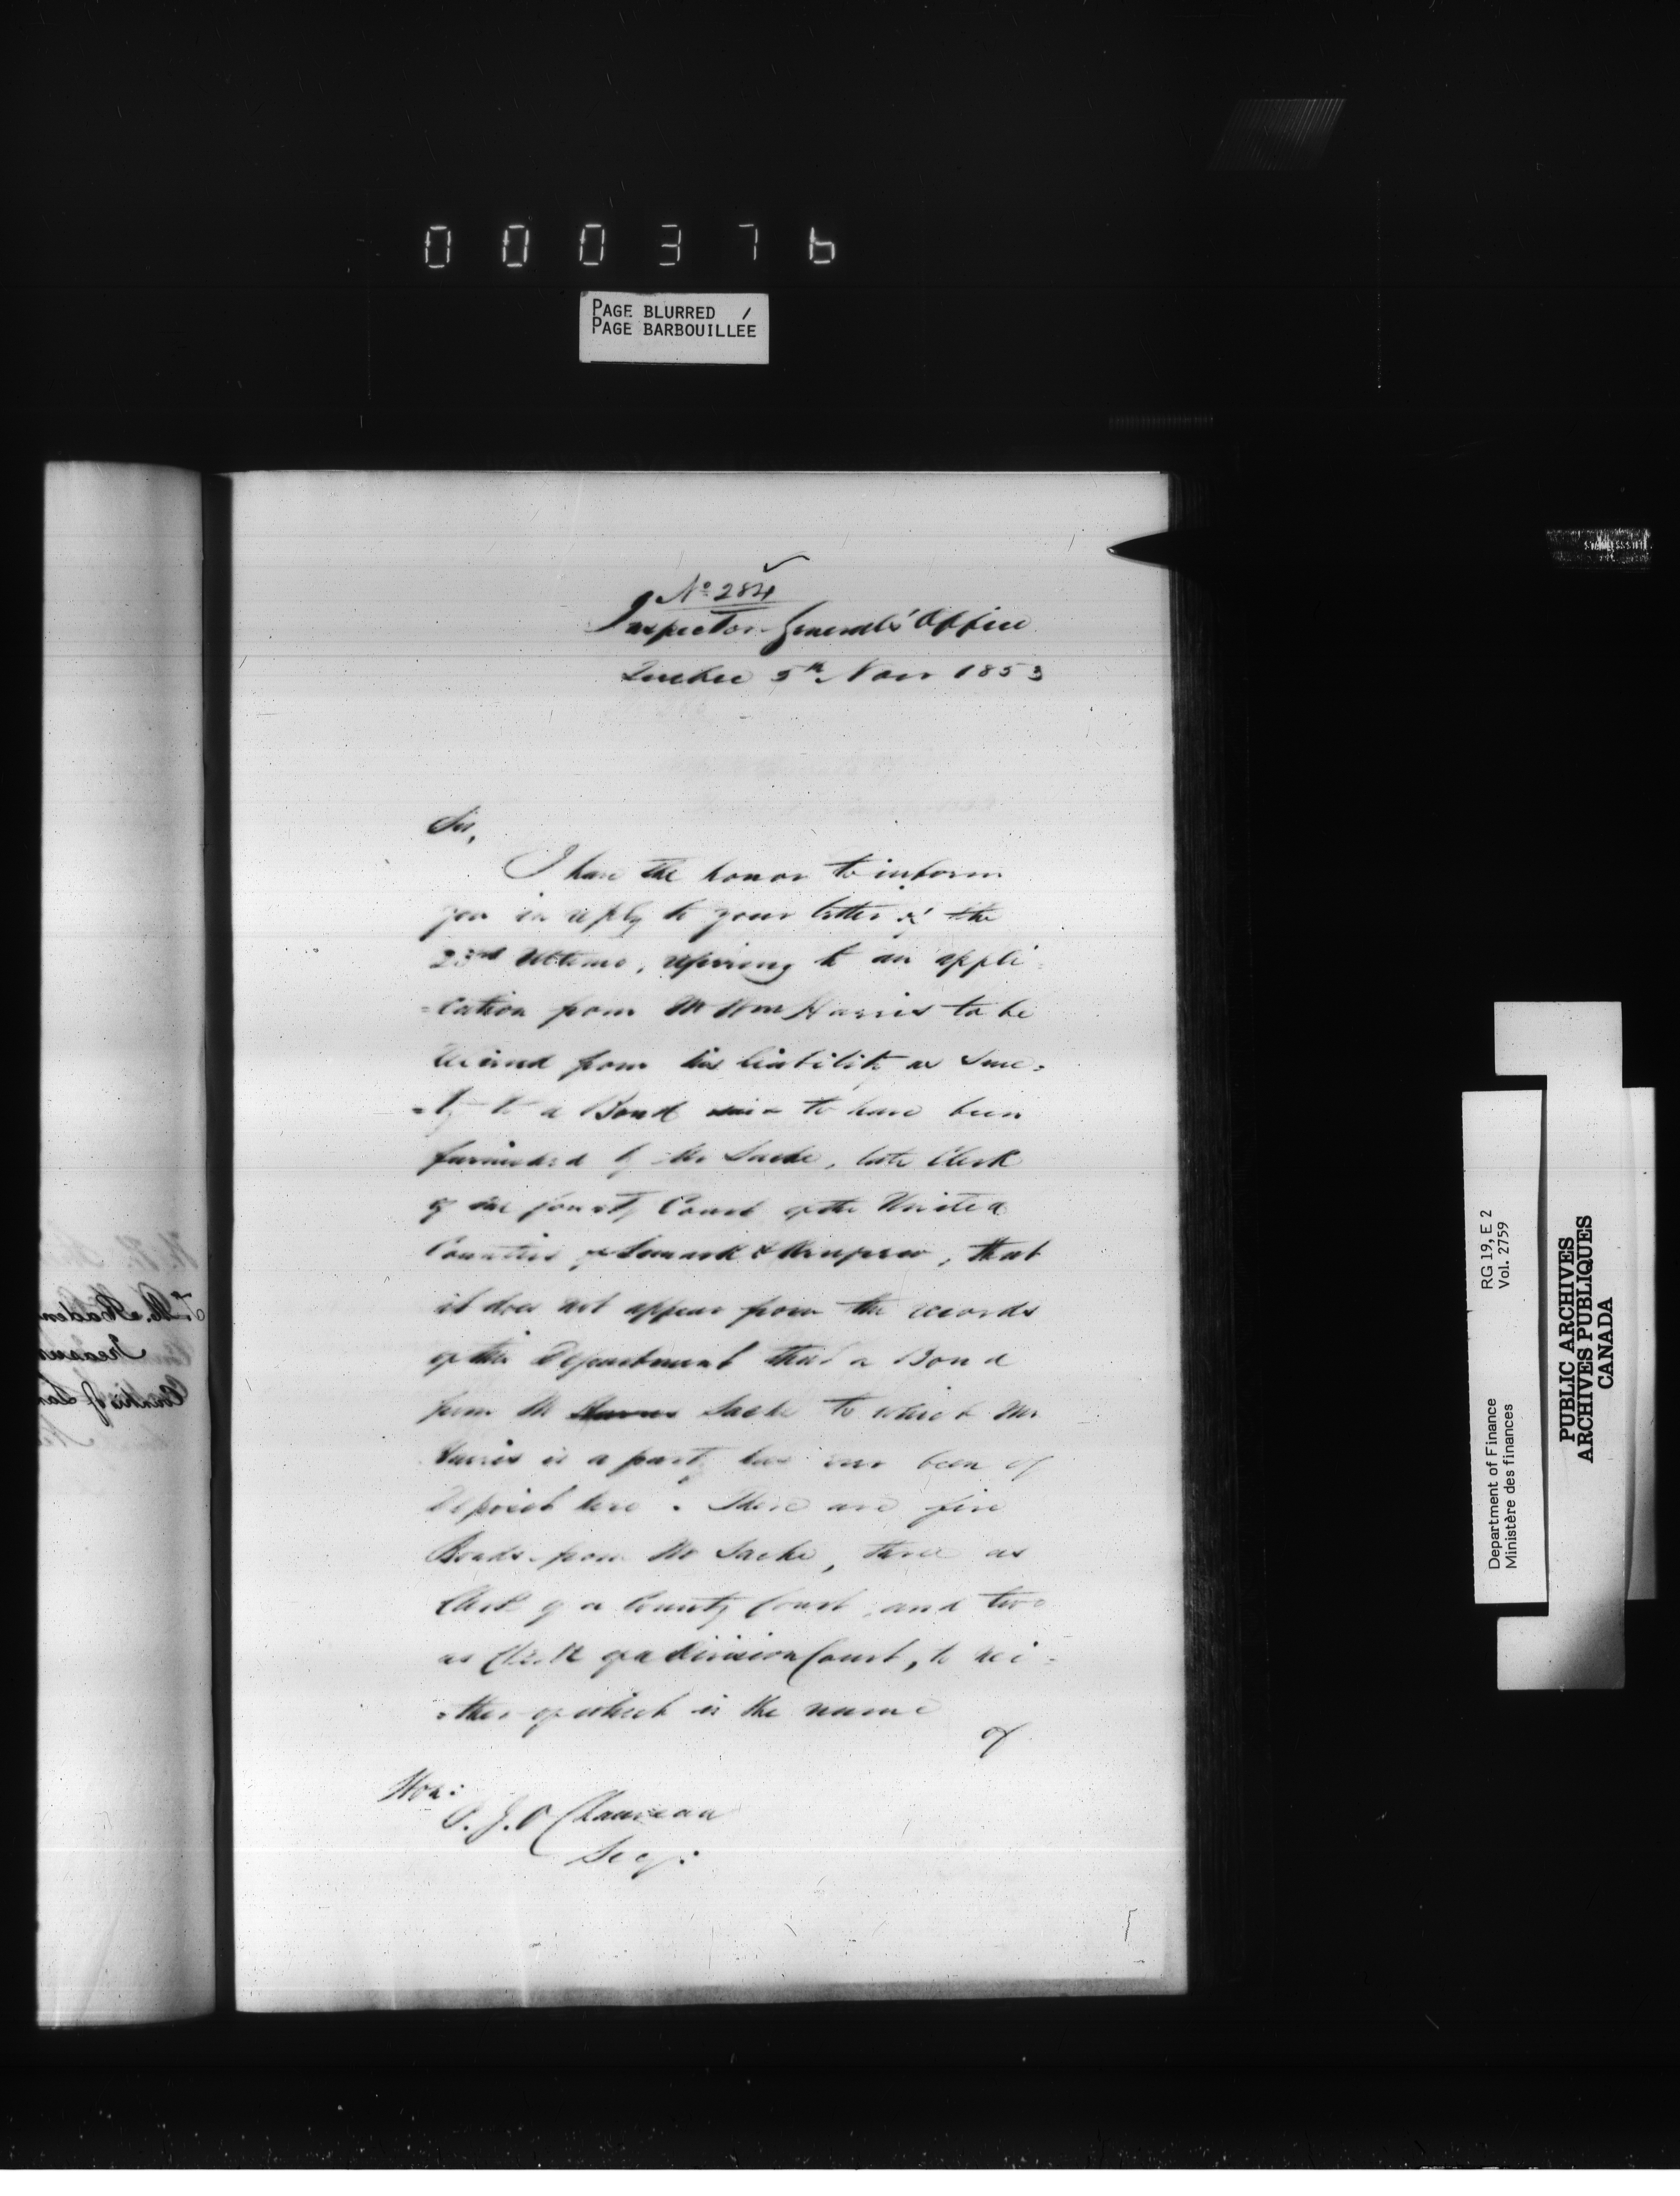 000376
PAGE BLURRED /
PAGE BARBOUILLÉE
No 284
Inspector General's Office
Quebec 5th Novr 1853
Sir,
I have the honor to inform
you in reply to your letter of the
23rd Ultimo, referring to an appli-
=cation from Mr Wm Harris to be
relieved from his liability as Sure=
=ty to a Bond said to have been
furnished by Mr Sache, late Clerk
of the County Court of the United
Counties of Lanark & Renfrew, that
it does not appear from the records
of this Department that a Bond
from Mr Harris Sache to which Mr
Harris is a party has ever been of
Deposit here. There are five
Bonds from Mr Sache, three as
Clerk of a County Court, and two
as Clerk of a Division Court, to nei=
=ther of which is the name
of
Hon:
P. J. O Chauveau
Secy:
RG 19, E 2
Vol. 2759
Department of Finance
Ministère des finances
PUBLIC ARCHIVES
ARCHIVES PUBLIQUES
CANADA